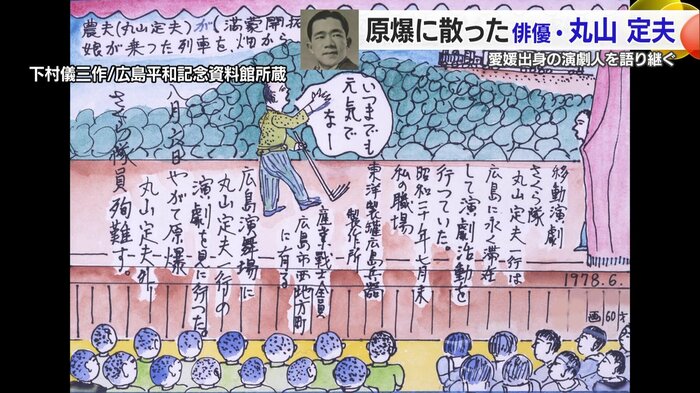 原爆に散った俳優・丸山 定夫
愛媛出身の演劇人を語り継ぐ
下村儀三作/広島平和記念資料館所蔵
農夫(丸山定夫)が(満蒙開拓
娘が乗った列車を、畑から
いつまでも
元気で
なー
移動演劇
さくら隊
丸山定夫一行は
広島に永く滞在
して演劇活動を
行っていた。
昭和二十年七月末
私の職場
東洋製罐広島兵器
製作所
広島市西地方町
に有る
産業戦士全員
広島演舞場に
丸山定夫一行の
演劇を見に行った。
八月六日やがて原爆
丸山定夫外
さくら隊員殉難す。
1978.6.
画60才